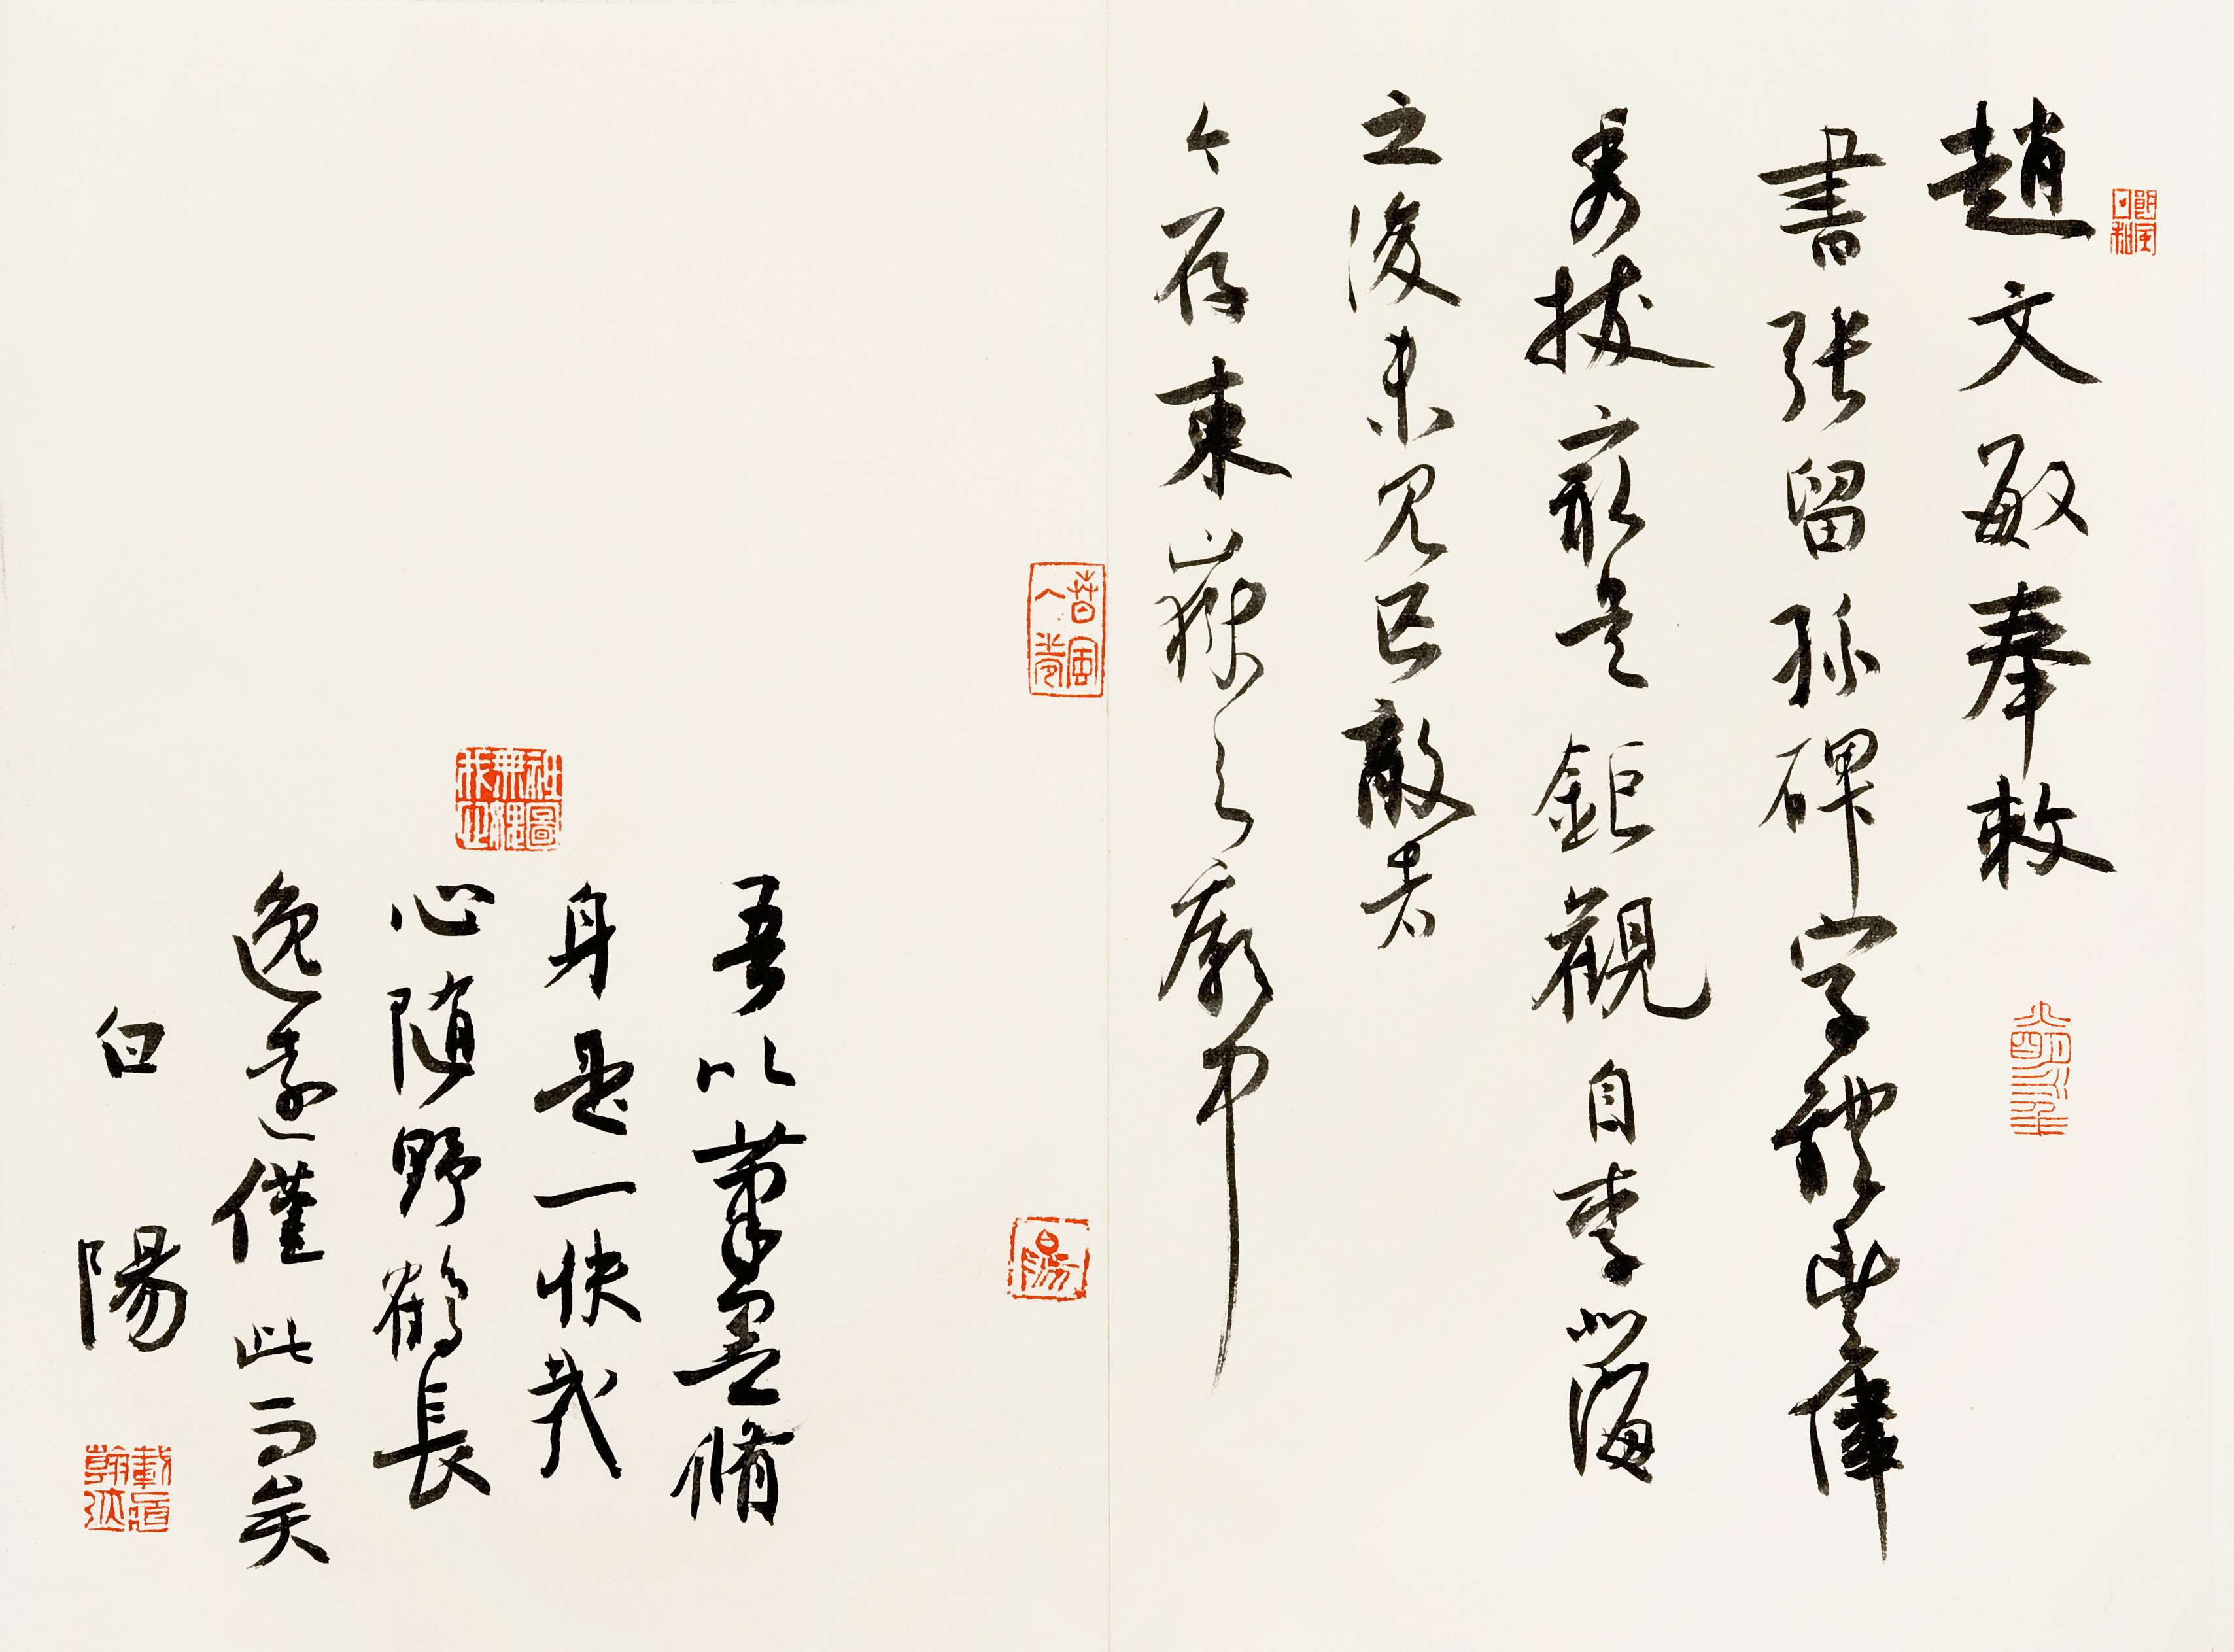 趙文敏奉敕
書張留孫碑字體豐偉
秀拔最是鉅觀自李北海
之後未見匹敵者
今存東嶽之廟中
白陽
吾以筆墨脩
身是一快哉
心隨野鶴長
逸遠僅此而矣
白陽